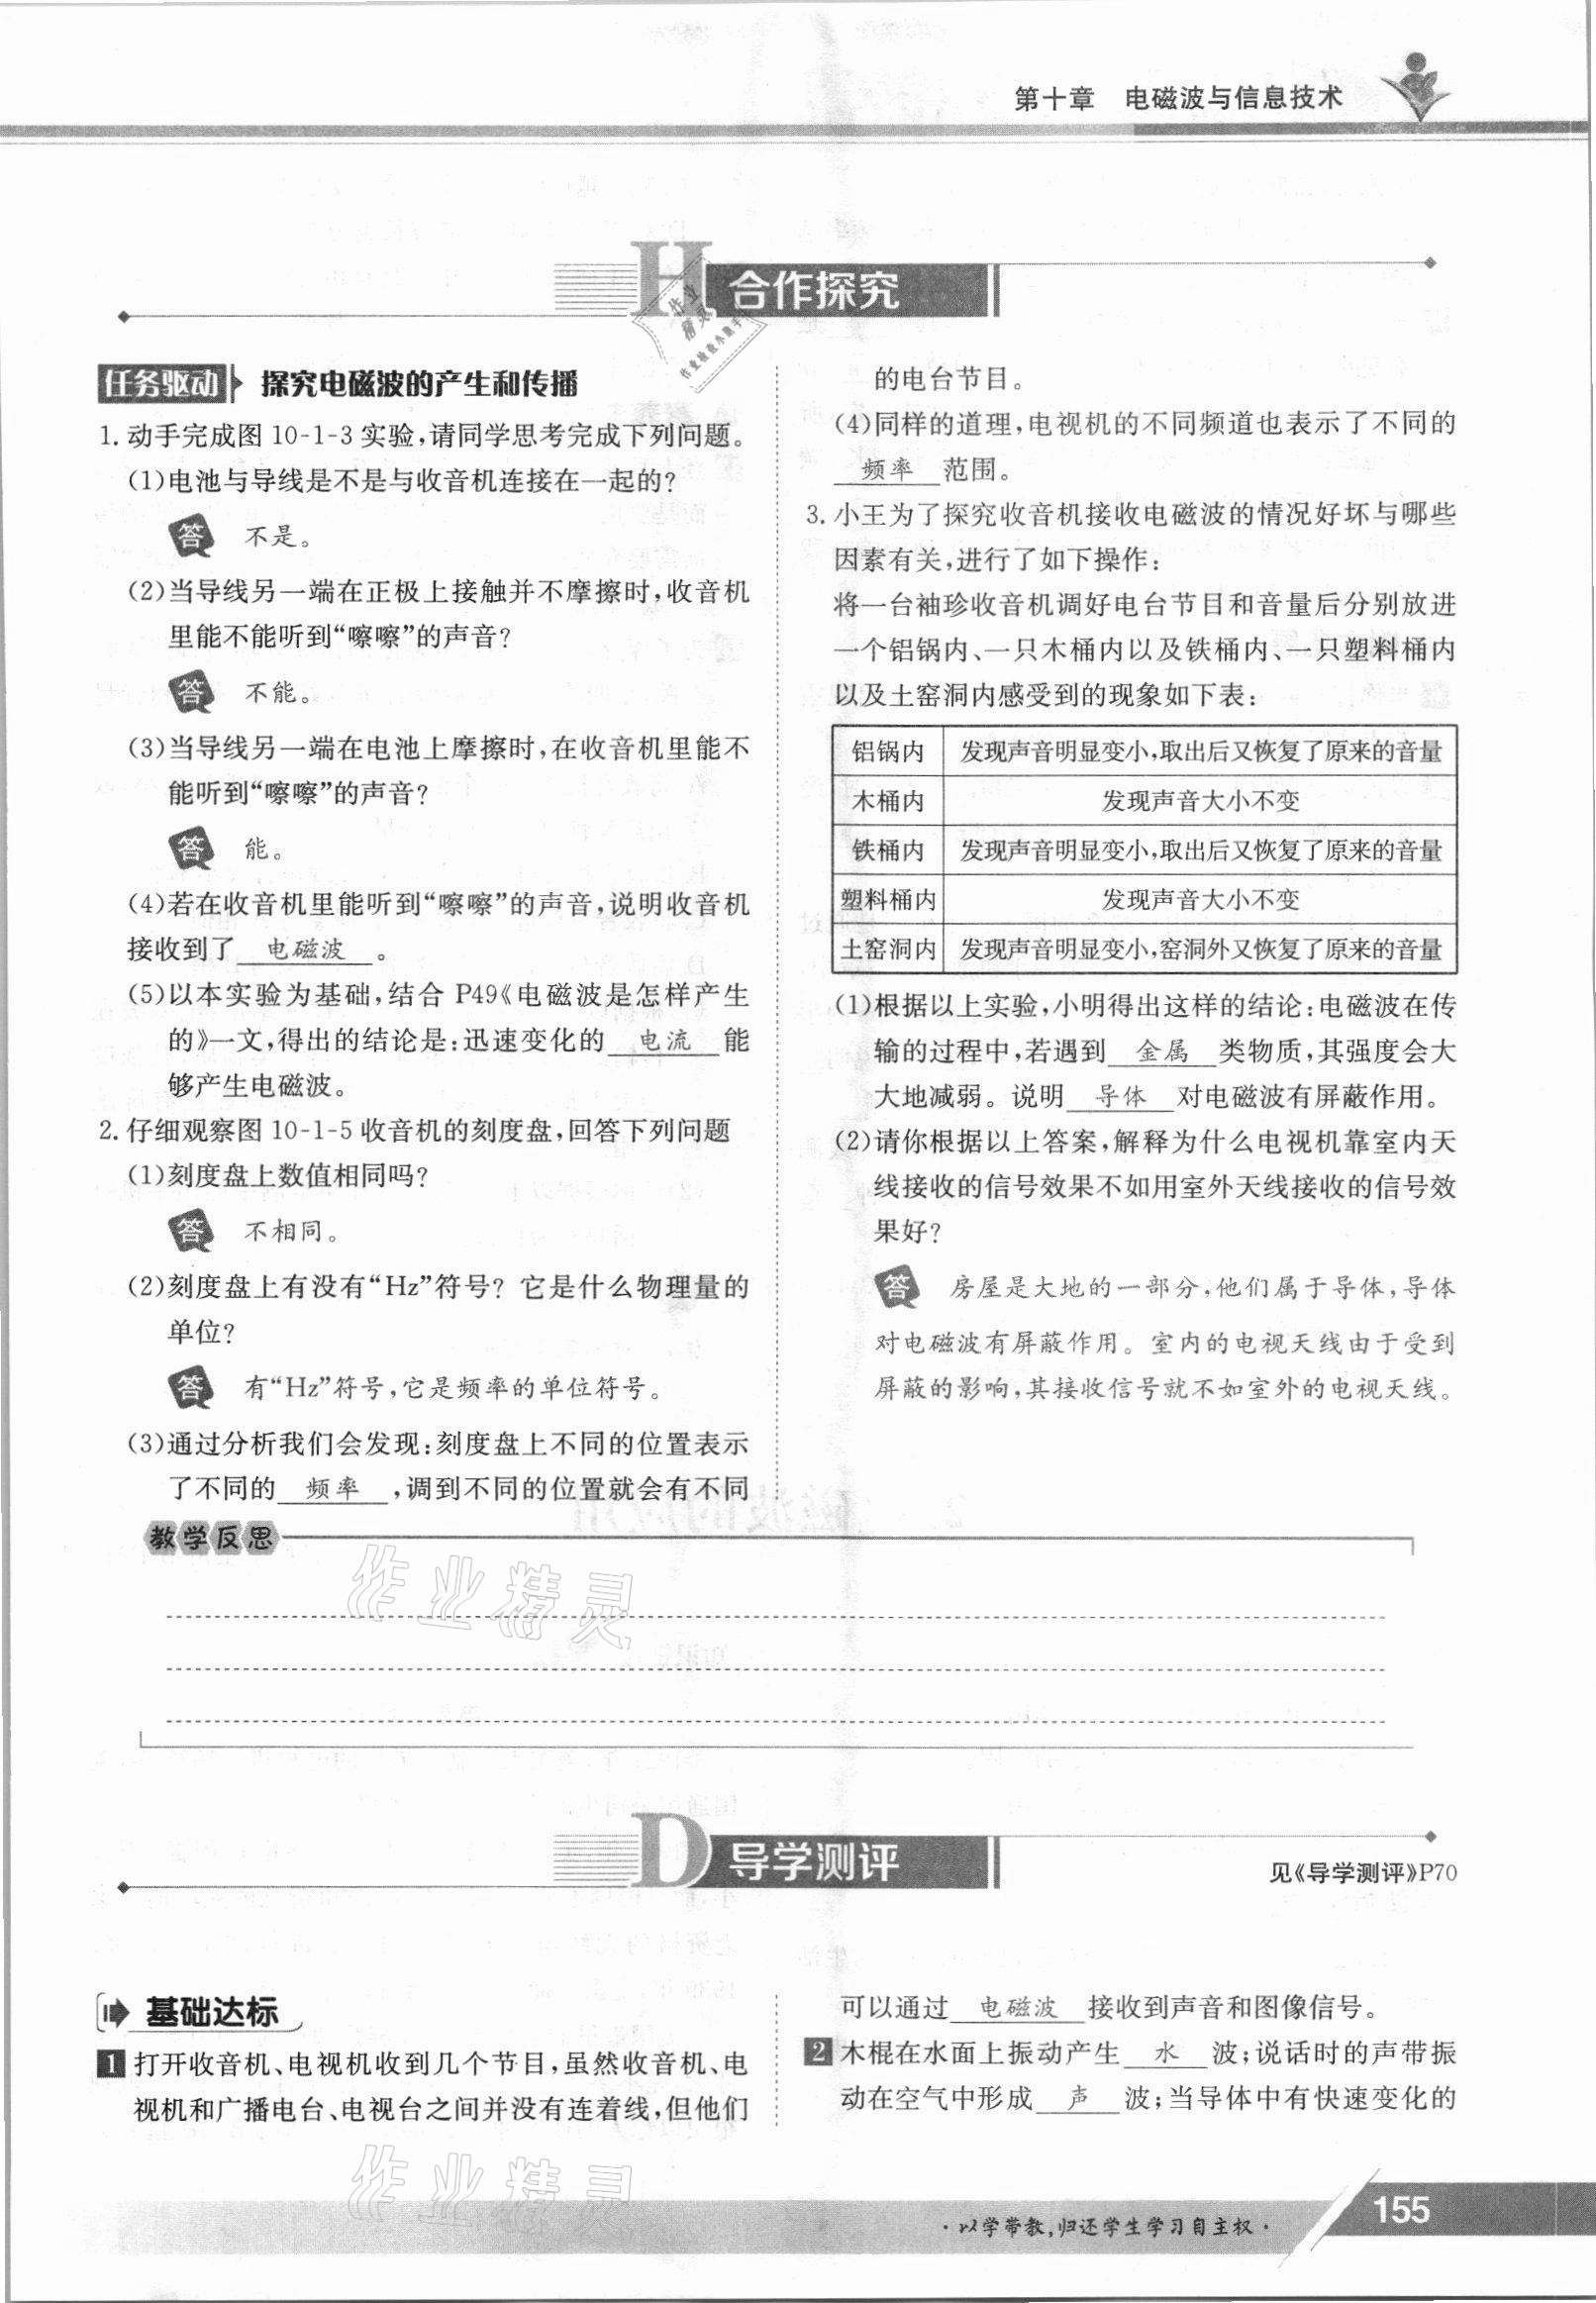 第十章 电磁波与信息技术
H 合作探究
任务驱动 探究电磁波的产生和传播
1. 动手完成图 10-1-3 实验,请同学思考完成下列问题。
(1)电池与导线是不是与收音机连接在一起的?
答 不是。
(2)当导线另一端在正极上接触并不摩擦时,收音机
里能不能听到“嚓嚓”的声音?
答 不能。
(3)当导线另一端在电池上摩擦时,在收音机里能不
能听到“嚓嚓”的声音?
答 能。
(4)若在收音机里能听到“嚓嚓”的声音,说明收音机
接收到了 电磁波 。
(5)以本实验为基础,结合 P49《电磁波是怎样产生
的》一文,得出的结论是:迅速变化的 电流 能
够产生电磁波。
2. 仔细观察图 10-1-5 收音机的刻度盘,回答下列问题
(1)刻度盘上数值相同吗?
答 不相同。
(2)刻度盘上有没有“Hz”符号? 它是什么物理量的
单位?
答 有“Hz”符号,它是频率的单位符号。
(3)通过分析我们会发现:刻度盘上不同的位置表示
了不同的 频率 ,调到不同的位置就会有不同
的电台节目。
(4)同样的道理,电视机的不同频道也表示了不同的
频率 范围。
3. 小王为了探究收音机接收电磁波的情况好坏与哪些
因素有关,进行了如下操作:
将一台袖珍收音机调好电台节目和音量后分别放进
一个铝锅内、一只木桶内以及铁桶内、一只塑料桶内
以及土窑洞内感受到的现象如下表:
铝锅内 发现声音明显变小,取出后又恢复了原来的音量
木桶内 发现声音大小不变
铁桶内 发现声音明显变小,取出后又恢复了原来的音量
塑料桶内 发现声音大小不变
土窑洞内 发现声音明显变小,窑洞外又恢复了原来的音量
(1)根据以上实验,小明得出这样的结论:电磁波在传
输的过程中,若遇到 金属 类物质,其强度会大
大地减弱。说明 导体 对电磁波有屏蔽作用。
(2)请你根据以上答案,解释为什么电视机靠室内天
线接收的信号效果不如用室外天线接收的信号效
果好?
答 房屋是大地的一部分,他们属于导体,导体
对电磁波有屏蔽作用。室内的电视天线由于受到
屏蔽的影响,其接收信号就不如室外的电视天线。
教学反思
作业精灵
D 导学测评
见《导学测评》P70
基础达标
1 打开收音机、电视机收到几个节目,虽然收音机、电
视机和广播电台、电视台之间并没有连着线,但他们
可以通过 电磁波 接收到声音和图像信号。
2 木棍在水面上振动产生 水 波;说话时的声带振
动在空气中形成 声 波;当导体中有快速变化的
作业精灵
·以学带教,归还学生学习自主权·
155